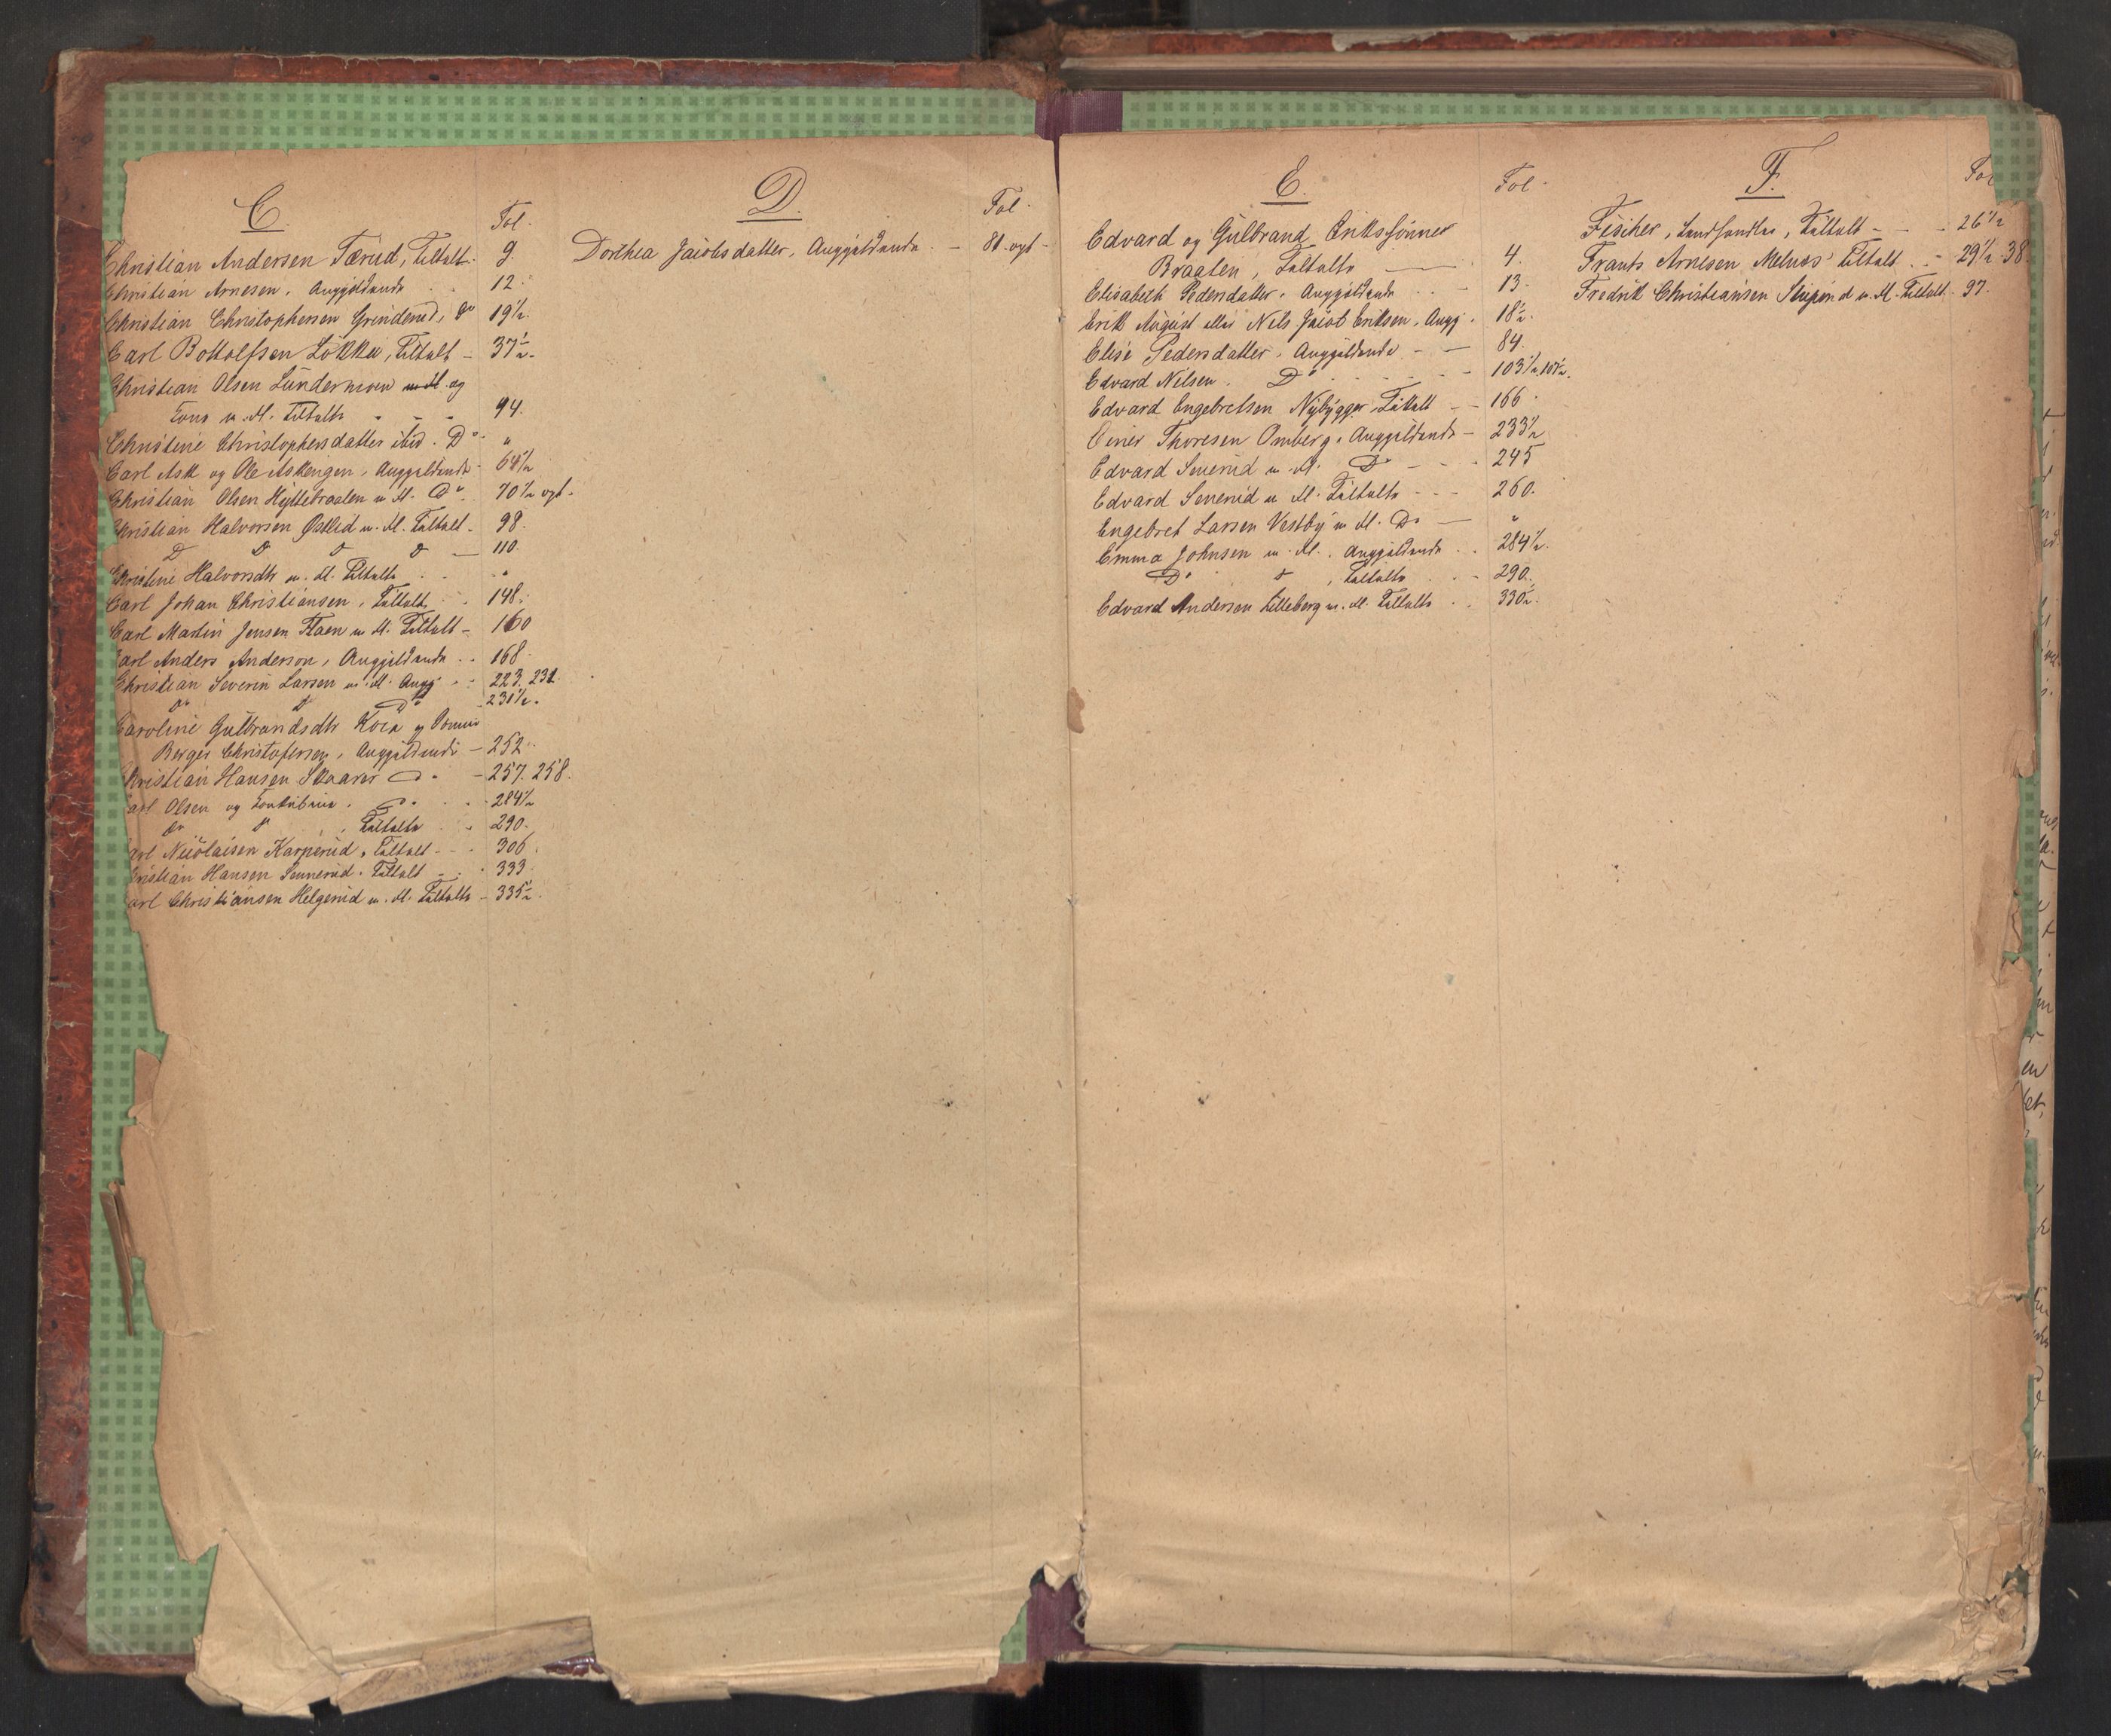 C.
Fol.
Christian Andersen Tærud, Tiltalt. 9.
Christian Arnesen, Angjældende 12.
Christian Christophersen Grinderud, Do 19 1/2.
Carl Bottolfsen Løkke, Tiltalt 37 1/2.
Christian Olsen Lundermoen m. fl. og
Kone m. fl. Tiltalte 94.
Christine Christophersdatter ibid. Do "
Carl Ask og Ole Askengen, Angjældende 64 1/2
Christian Olsen Hyttebraaten m. fl. Do 70 1/2 ogf.
Christian Halvorsen Østlid m. fl. Tiltalt 98.
D D D D 110.
Christine Halvorsdtr m. fl. Tiltalte "
Carl Johan Christiansen, Tiltalt 148.
Carl Martin Jensen Flaen m. fl. Tiltalt 160
Carl Anders Anderson, Angjældende 168
Christian Severin Larsen m. fl. Angj. 223. 231.
Do D Do 231 1/2.
Caroline Gulbrandsdtr og
Berger Christofersen, Angjældende 252
Christian Hansen Skaarer Do 257. 258.
arl Olsen og Do 284 1/2
Do D, Tiltalte 290.
arl Nicolaisen Karperud, Tiltalt 306.
hristian Hansen Sennerud. Tiltalt 333.
arl Christiansen Helgerud m. fl. Tiltalte 335 1/2.
D.
Fol.
Dorthea Jacobsdatter, Angjældende 81 ogf
E.
Fol.
Edvard og Gulbrand Erikssønner
Braaten, Tiltalte 4.
Elisabeth Pedersdatter, Angjældende 13.
Erik August eller Nils Jacob Eriksen, Angj. 18 1/2.
Elise Pedersdatter, Angjældende 84.
Edvard Nilsen. Do 103 1/2. 107 1/2.
Edvard Engebretsen Nybygger, Tiltalt 166
Einer Thoresen Omberg, Angjældende 233 1/2
Edvard Sennerud m. fl. Do 245
Edvard Sennerud m. fl. Tiltalte 260.
Engebret Larsen Vestby m. fl. Do "
Emma Johnsen m. fl., Angjældende 284 1/2.
Do D, Tiltalte 290.
Edvard Andersen Lilleberg m. fl. Tiltalte 330 1/2.
F.
Fol
Fischer, Landhandler, Tiltalt 26 1/2
Frants Arnesen Melnes, Tiltalt 29 1/2. 38
Fredrik Christiansen m. fl. Tiltalt. 97.